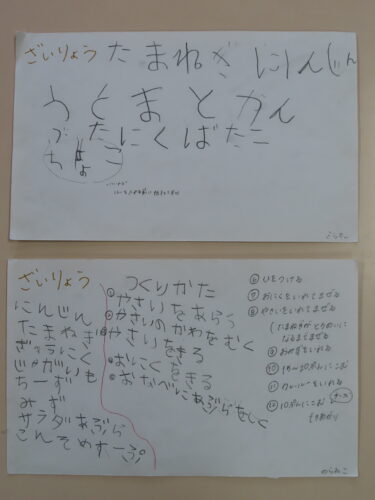 ざいりょう たまねぎ にんじん
とまとかん
ぶたにくばたー
ちょこ
ざいりょう
にんじん
たまねぎ
ぎゅうにく
じゃがいも
ちーず
みず
サラダあぶら
こんそめすーぷ
つくりかた
①やさいをあらう
②やさいのかわをむく
③やさいをきる
④おにくをきる
⑤おなべにあぶらをしく
⑥ひをつける
⑦おにくをいれてまぜる
⑧やさいをいれてまぜる
(たまねぎがとうめいに
なるまでまぜる
⑨おみずをいれる
⑩15〜20ぷんにこむ
⑪カレールーをいれる
チーズ
⑫10ぷんにこむ
できあがり
のらねこ